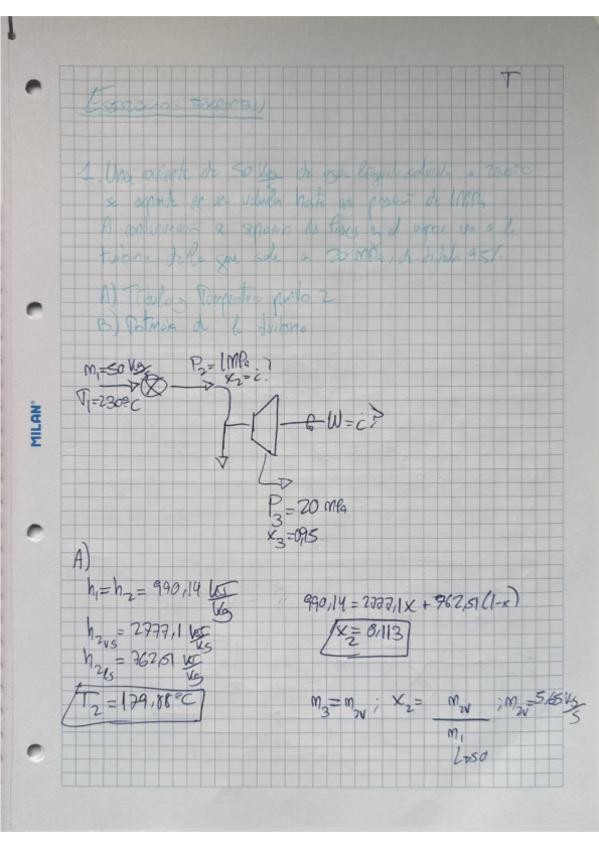 T
EJERCICIOS EXAMEN
1. Una corriente de 50 kg/s de agua líquida saturada a 230°C
se expande en un válvula hasta una presión de 1MPa
A continuación se separan las fases y el vapor va a la
turbina, de la que sale a 20 MPa, de título 95%.
A) Título y Temperatura punto 2
B) Potencia de la turbina
m₁=50 kg/s
P₂=1MPa
x₂=¿?
T₁=230°C
W=¿?
P₃=20 MPa
x₃=0,95
MILAN
A)
h₁=h₂=990,14 kJ/kg
990,14=2777,1x + 762,51(1-x)
h₂vs=2777,1 kJ/kg
x₂=0,113
h₂ls=762,51 kJ/kg
T₂=179,88°C
m₃=m₂v ; x₂= m₂v/m₁ ; m₂v=5,65 kg/s
50